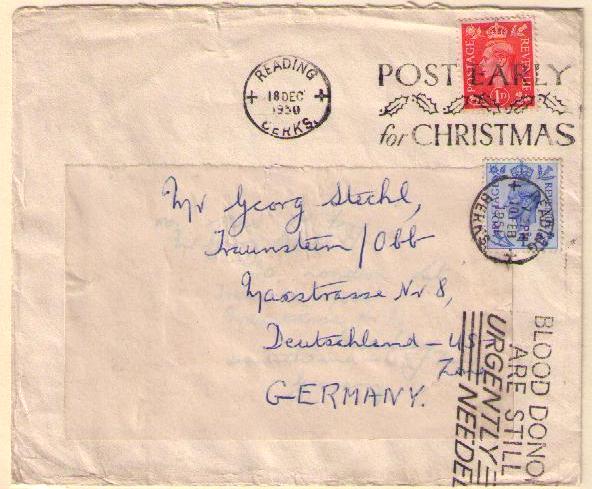 READING
18 DEC
1950
BERKS.
POST EARLY
for CHRISTMAS
POSTAGE REVENUE
1D
Mr Georg Stechl,
Traunstein/Obb
Maxstrasse Nr 8,
Deutschland - US
Zone
GERMANY.
POSTAGE REVENUE
READING
FEB
BERKS
BLOOD DONO
ARE STILL
URGENTLY
NEEDED